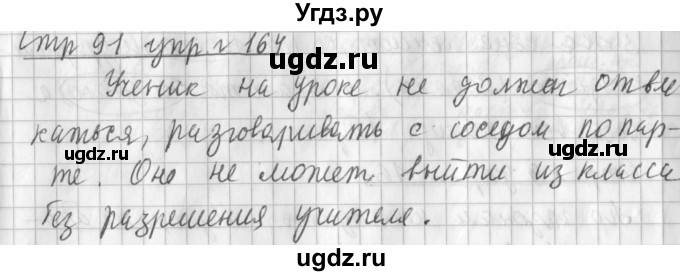 Угдз.ру
Стр 91 упр г 164
ugdz.ru
Ученик на уроке не должен отвле
ugdz.ru
каться, разговаривать с соседом по пар-
те. Оно не может выйти из класса
ugdz.ru
без разрешения учителя.
ugdz.ru
Угдз.ру